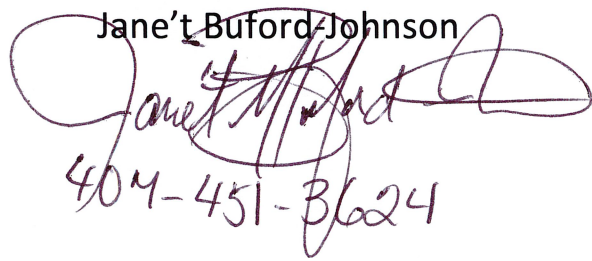 Jane’t Buford-Johnson
Jane't M Buford
404-451-3624